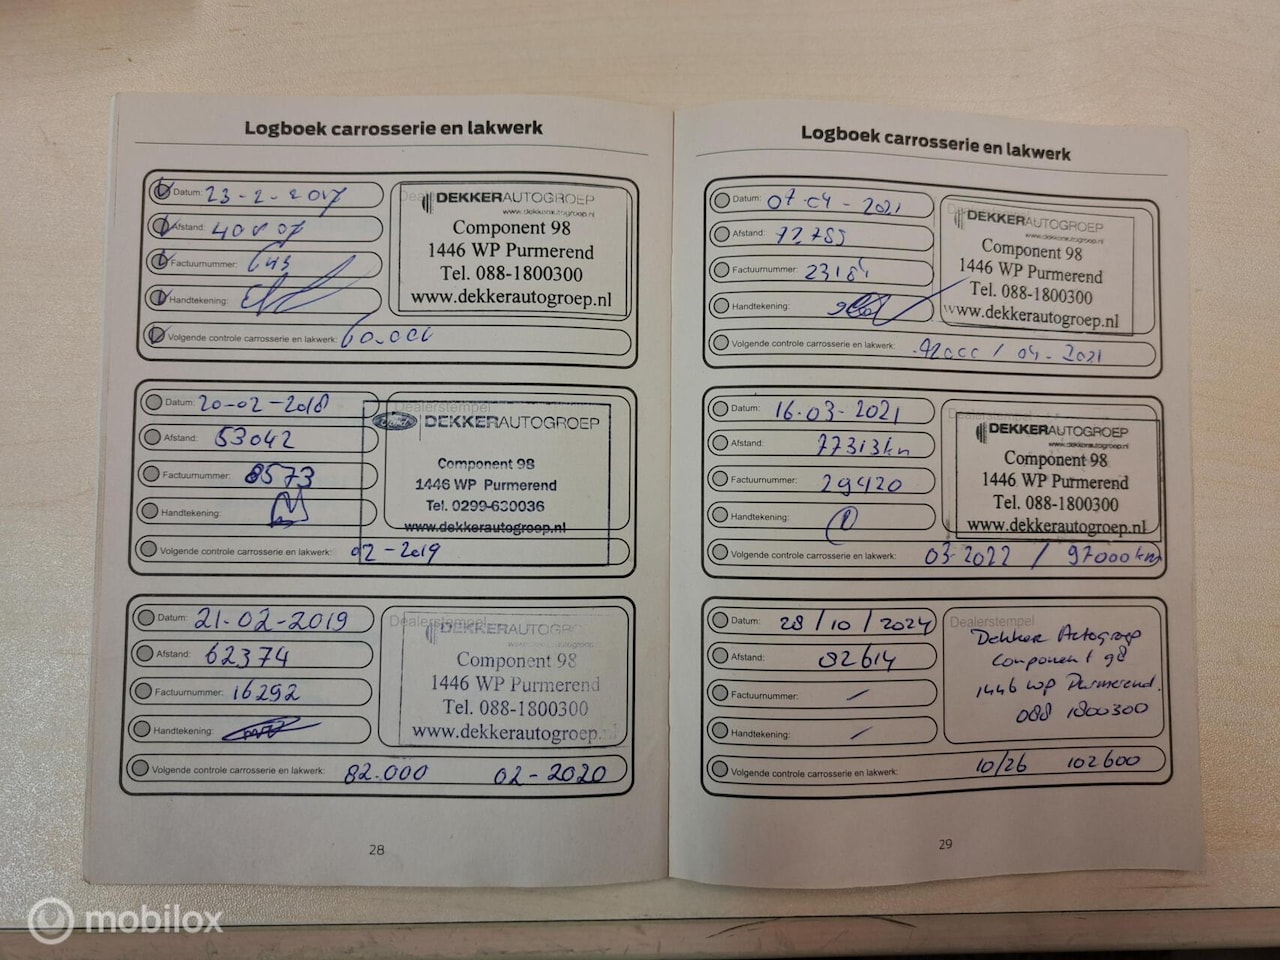 Logboek carrosserie en lakwerk
Datum: 23-2-2017
Afstand:
Factuurnummer:
Handtekening:
Volgende controle carrosserie en lakwerk: 60.000
DEKKERAUTOGROEP
www.dekkerautogroep.nl
Component 98
1446 WP Purmerend
Tel. 088-1800300
www.dekkerautogroep.nl
Datum: 20-02-2018
Afstand: 53042
Factuurnummer: 8573
Handtekening:
Volgende controle carrosserie en lakwerk: 02-2019
Dealerstempel
DEKKERAUTOGROEP
Component 98
1446 WP Purmerend
Tel. 0299-630036
www.dekkerautogroep.nl
Datum: 21-02-2019
Afstand: 62374
Factuurnummer: 16292
Handtekening:
Volgende controle carrosserie en lakwerk: 82.000 02-2020
Dealerstempel
DEKKERAUTOGRO
Component 98
1446 WP Purmerend
Tel. 088-1800300
www.dekkerautogroep.nl
28
Logboek carrosserie en lakwerk
Datum: 07-04-2021
Afstand: 72785
Factuurnummer: 23184
Handtekening:
Volgende controle carrosserie en lakwerk: 92000 / 04-2021
DEKKERAUTOGROEP
www.dekkerautogroep.nl
Component 98
1446 WP Purmerend
Tel. 088-1800300
www.dekkerautogroep.nl
Datum: 16-03-2021
Afstand: 77313km
Factuurnummer: 29420
Handtekening:
Volgende controle carrosserie en lakwerk: 03-2022 / 97000km
Dealerstempel
DEKKERAUTOGROEP
www.dekkerautogroep.nl
Component 98
1446 WP Purmerend
Tel. 088-1800300
www.dekkerautogroep.nl
Datum: 28/10/2024
Afstand: 82614
Factuurnummer: /
Handtekening: /
Volgende controle carrosserie en lakwerk: 10/26 102600
Dealerstempel
Dekker Autogroep
Component 98
1446 WP Purmerend.
088 1800300
29
mobilox